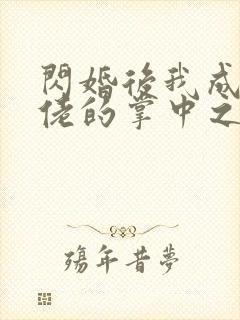 閃婚後我成
佬的掌中之
殤年昔夢